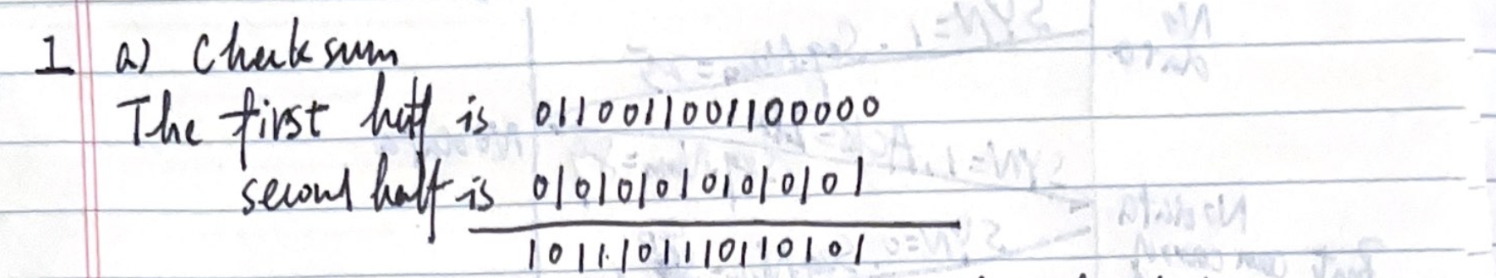 1 a) Checksum
The first half is 0110011001100000
second half is 0101010101010101
1011101110110101